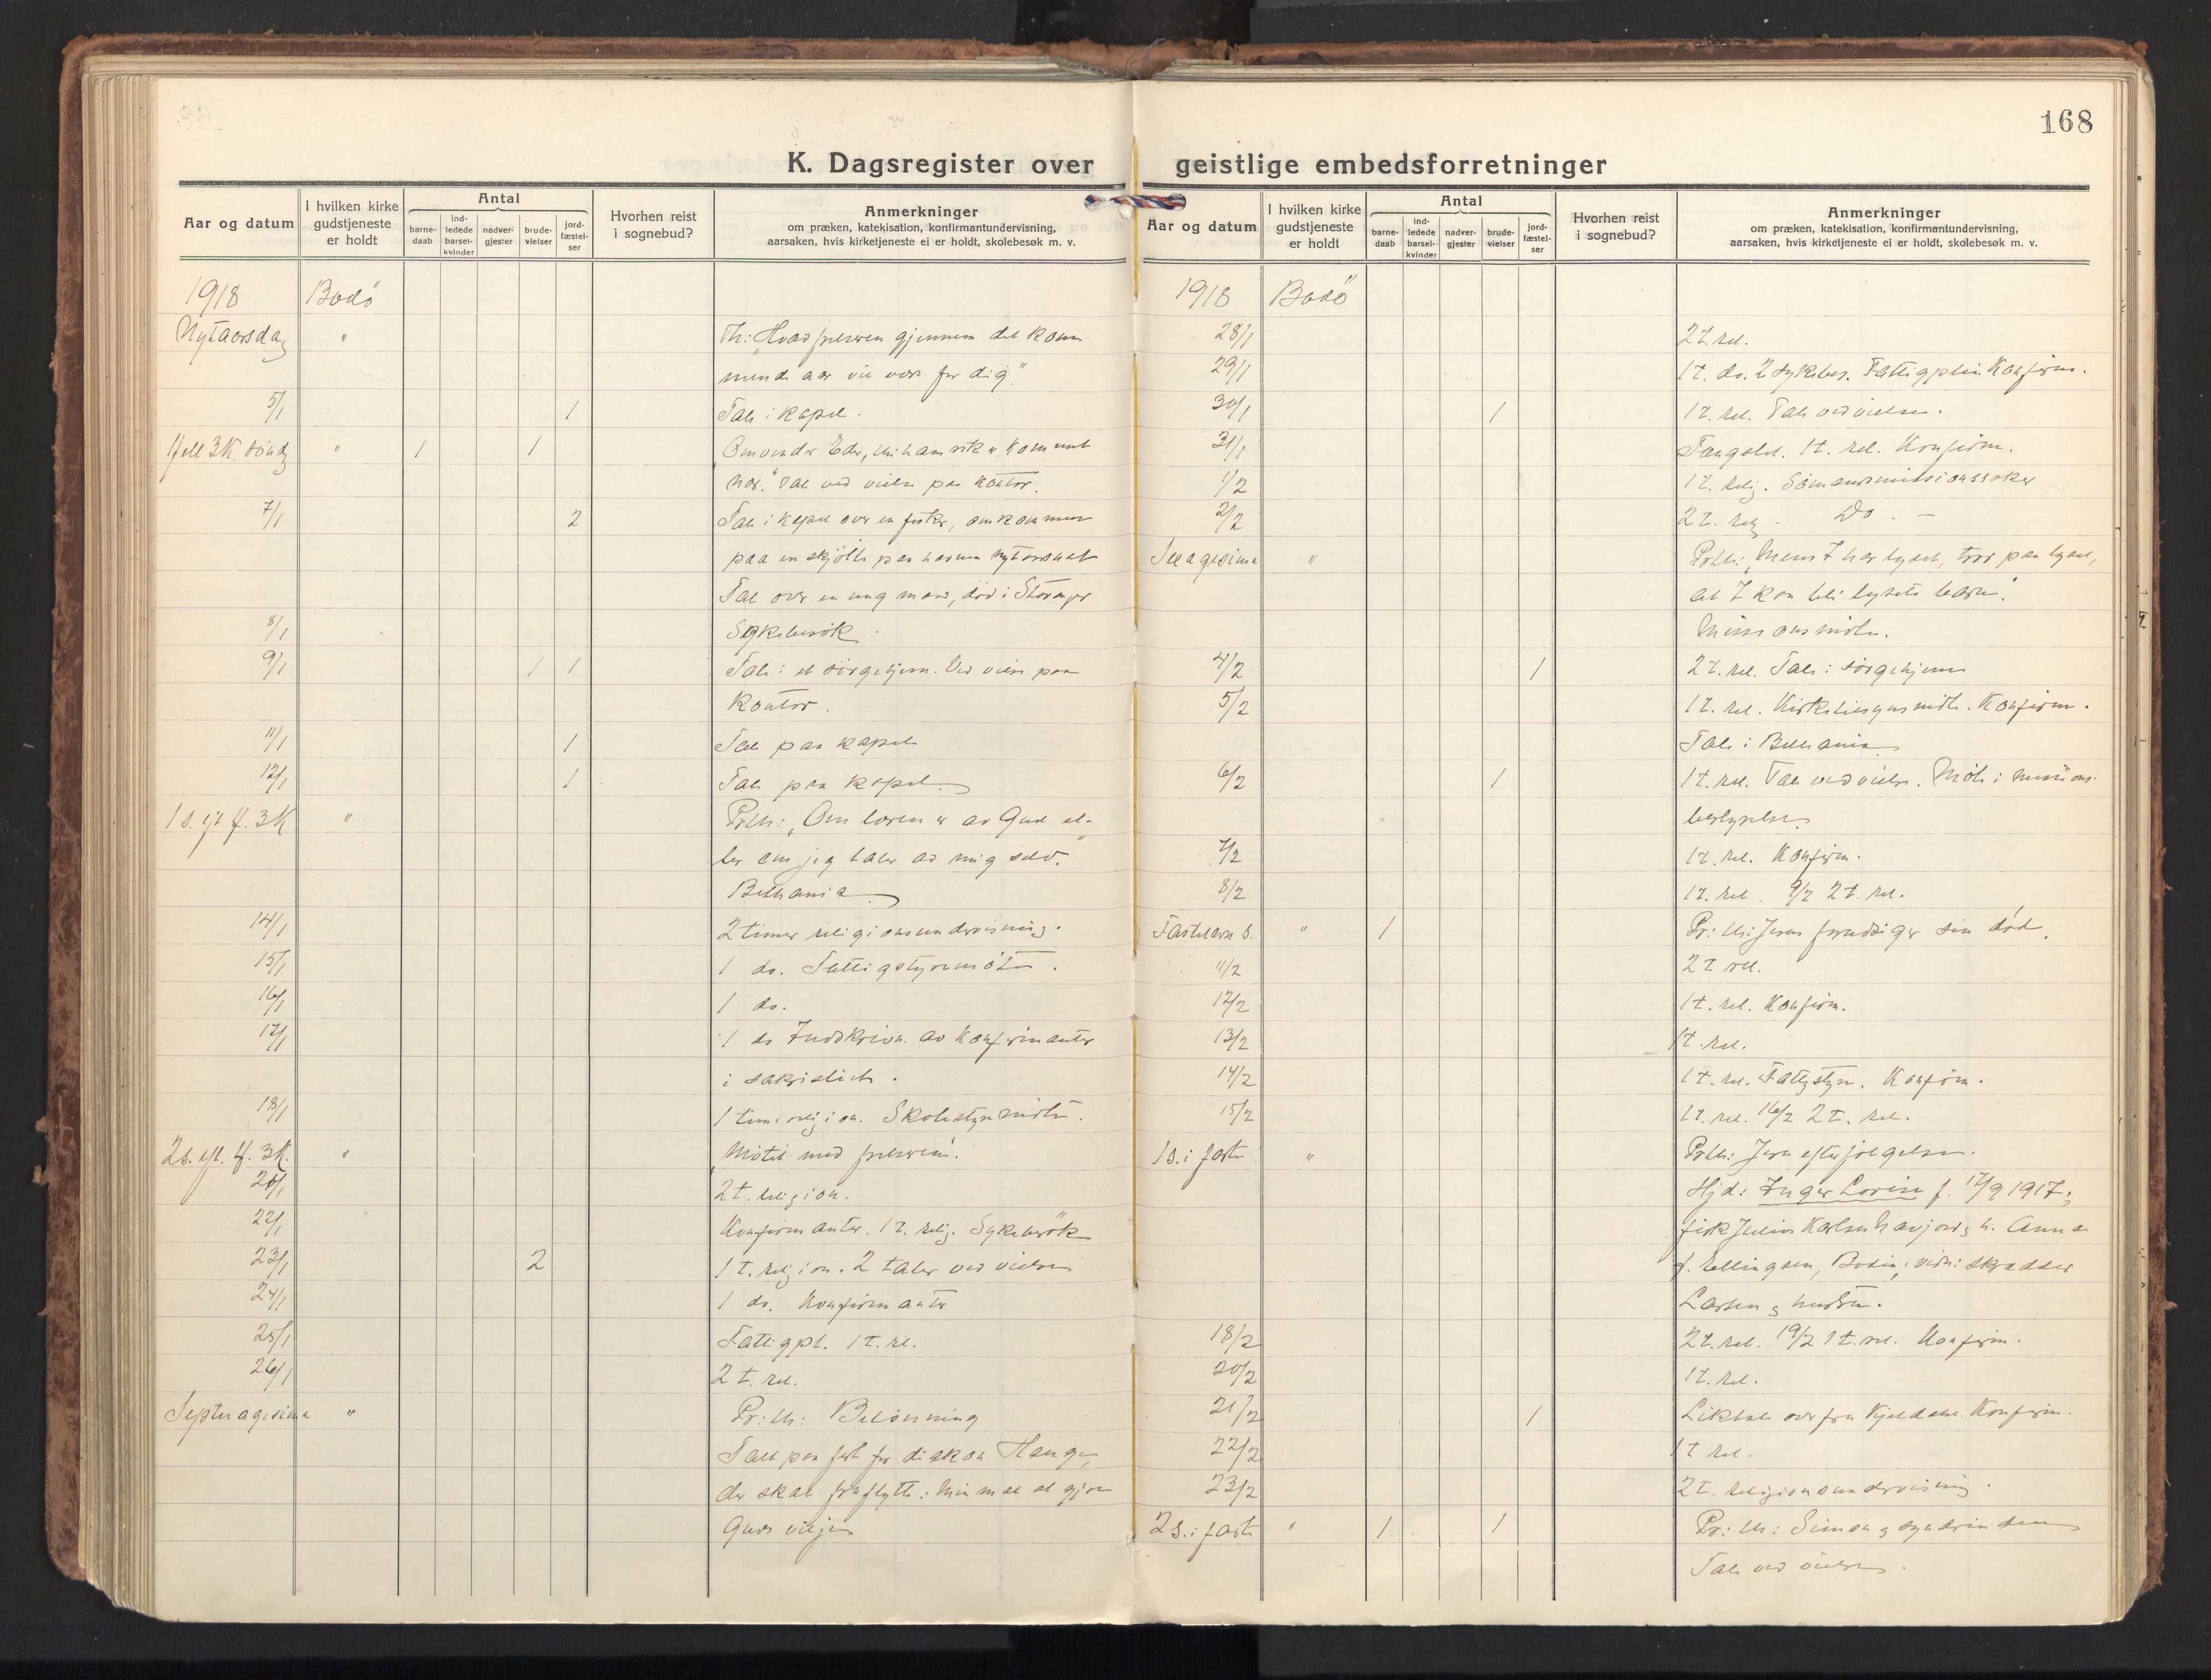 168
K. Dagsregister over geistlige embedsforretninger
Aar og datum
I hvilken kirke gudstjeneste er holdt
Antal
barne-daab
ind-ledede barsel-kvinder
nadver-gjester
brude-vielser
jord-fæstel-ser
Hvorhen reist i sognebud?
Anmerkninger
om præken, katekisation, konfirmantundervisning,
aarsaken, hvis kirketjeneste ei er holdt, skolebesøk m. v.
1918 Bodö
Nytaarsdag " Th: "Hvad frelseren gjennem det kom-
mende aar vil være for dig".
5/1 1 Tale i kapel.
" 1 1 Omvender Eder, ti himmerike er kommet
nær." Tale ved vielse paa kontor.
7/1 2 Tale i kapel over en fisker, omkommen
paa en skjöite paa havnen nytaarsnat
Tale over en ung mand, död i Stavanger
8/1 Sykebesök.
9/1 1 1 Tale i et sörgehjem. Ved vielse paa
kontor.
11/1 1 Tale paa kapel
12/1 1 Tale paa kapel.
1 s. eft. H. 3 K " Prth: "Om læren er av Gud el-
ler om jeg taler av mig selv."
Bethania.
14/1 2 timer religionsundervisning.
15/1 1 do. Fattigstyremöte.
16/1 1 do.
17/1 1 do Indskrivn. av Konfirmanter
i sakristiet.
18/1 1 time religion. Skolestyremöte.
2 s. eft. H. 3 K. " Mötet med frelseren.
2 t. religion.
22/1 Konfirmanter. 1 t. relig. Sykebesök
23/1 2 1 t. religion. 2 taler ved vielser
24/1 1 do. Konfirmanter
25/1 Fattigpl. 1 t. re.
26/1 2 t. rel.
Septuagesima " Pr: th: Belönning
Tale paa fest for diakon Hauge,
der skal fraflytte: Min mat at gjöre
Guds vilje
Aar og datum
I hvilken kirke gudstjeneste er holdt
Antal
barne-daab
ind-ledede barsel-kvinder
nadver-gjester
brude-vielser
jord-fæstel-ser
Hvorhen reist i sognebud?
Anmerkninger
om præken, katekisation, konfirmantundervisning,
aarsaken, hvis kirketjeneste ei er holdt, skolebesøk m. v.
1918 Bodö
28/1 2 t. rel.
29/1 1 t. do. 2 sykebes. Fattigplei. Konfirm.
30/1 1 1 t. rel. Tale ved vielse.
31/1 Fængslet. 1 t. rel. Konfirm.
1/2 1 t. relig. Sömandsmissionssaker
2/2 2 t. relg. Do. —
Sexagesima " Prth: "Mens I har lyset, tror paa lyset,
at I kan bli lysets barn."
Missionsmöte.
4/2 1 2 t. rel. Tale i sörgehjem
5/2 1 t. rel. Kirketilsynsmöte. Konfirm.
Tale i Bethania
6/2 1 1 t. rel. Tale ved vielse. Möte i missions-
bestyrelse.
7/2 1 t. rel. Konfirm.
8/2 1 t. rel. 9/2 2 t. rel.
Fastelavn s. " 1 Pr: th: Jesus forudsiger sin död.
11/2 2 t rel.
12/2 1 t. rel. Konfirm.
13/2 1 t. rel.
14/2 1 t. rel. Fattigstyr. Konfirm.
15/2 1 t. rel. 16/2 2 t. rel.
1 s. i faste " Prth: Jesu efterfölgelse.
Hjd: Inger Lovise f. 17/9 1917;
fisk Julius Karlsen h. Anna
f. Ellingsen, Bodin; vidn: skrædder
Larsen og hustru.
18/2 2 t. rel. 19/2 1 t. rel. Konfirm.
20/2 1 t. rel.
21/2 1 Liktale over fru Kjeldahl. Konfirm.
22/2 1 t rel.
23/2 2 t. religionsundervisning.
2 s. i faste " 1 1 Pr: th: Simon og synderinden
Tale ved vielse.